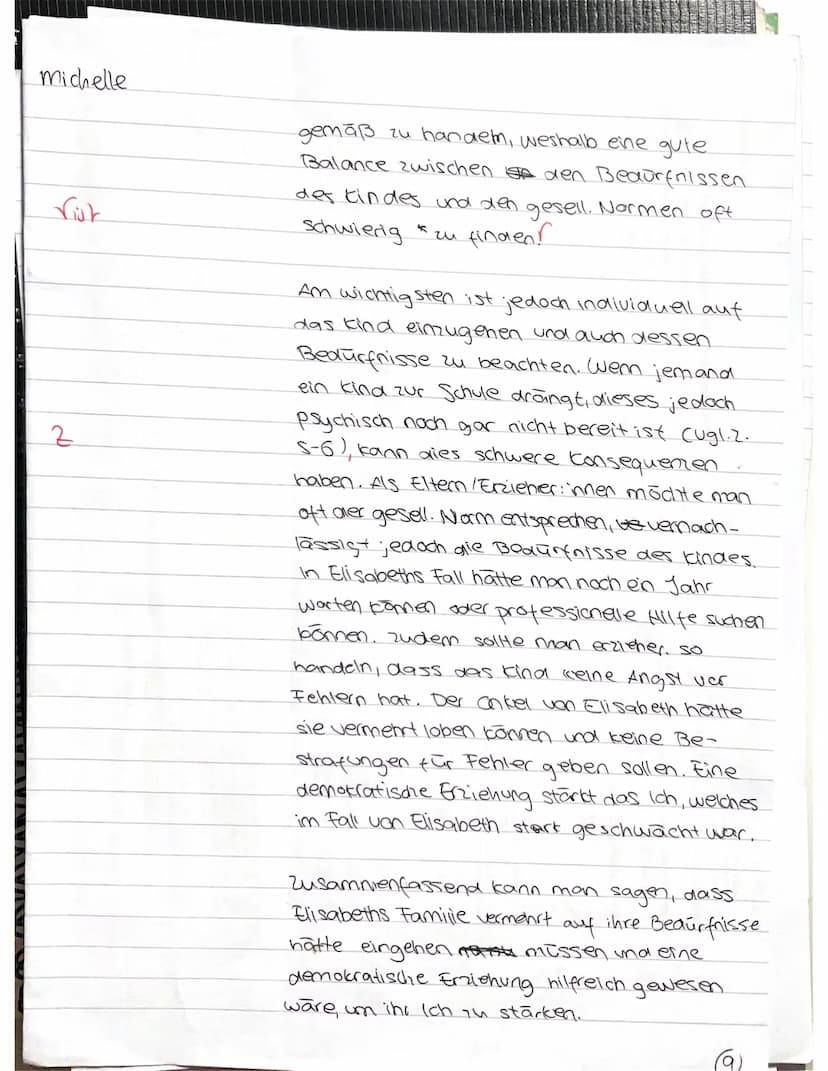 michelle
gemäß zu handeln, weshalb eine gute
Balance zwischen den Bedürfnissen
des Kindes und den gesell. Normen oft
schwierig * zu finden!
Am wichtigsten ist jedoch individuell auf
das Kind einzugehen und auch dessen
Bedürfnisse zu beachten. Wenn jemand
ein Kind zur Schule drängt, dieses jedoch
psychisch noch gar nicht bereit ist (vgl. Z.
2
5-6), kann dies schwere Konsequenzen
haben. Als Eltern/Erzieher:innen möchte man
oft der gesell. Norm entsprechen, vernach-
lässigt jedoch die Bedürfnisse des Kindes.
In Elisabeths Fall hätte man noch ein Jahr
warten können oder professionelle Hilfe suchen
können. Zudem sollte man erzieher. so
handeln, dass das Kind keine Angst vor
Fehlern hat. Der Onkel von Elisabeth hätte
sie vermehrt loben können und keine Be-
strafungen für Fehler geben sollen. Eine
demokratische Erziehung stärkt das Ich, welches
im Fall von Elisabeth stark geschwächt war.
Zusammenfassend kann man sagen, dass
Elisabeths Familie vermehrt auf ihre Bedürfnisse
hätte eingehen müssen und eine
demokratische Erziehung hilfreich gewesen
wäre, um ihr Ich zu stärken.
(9)